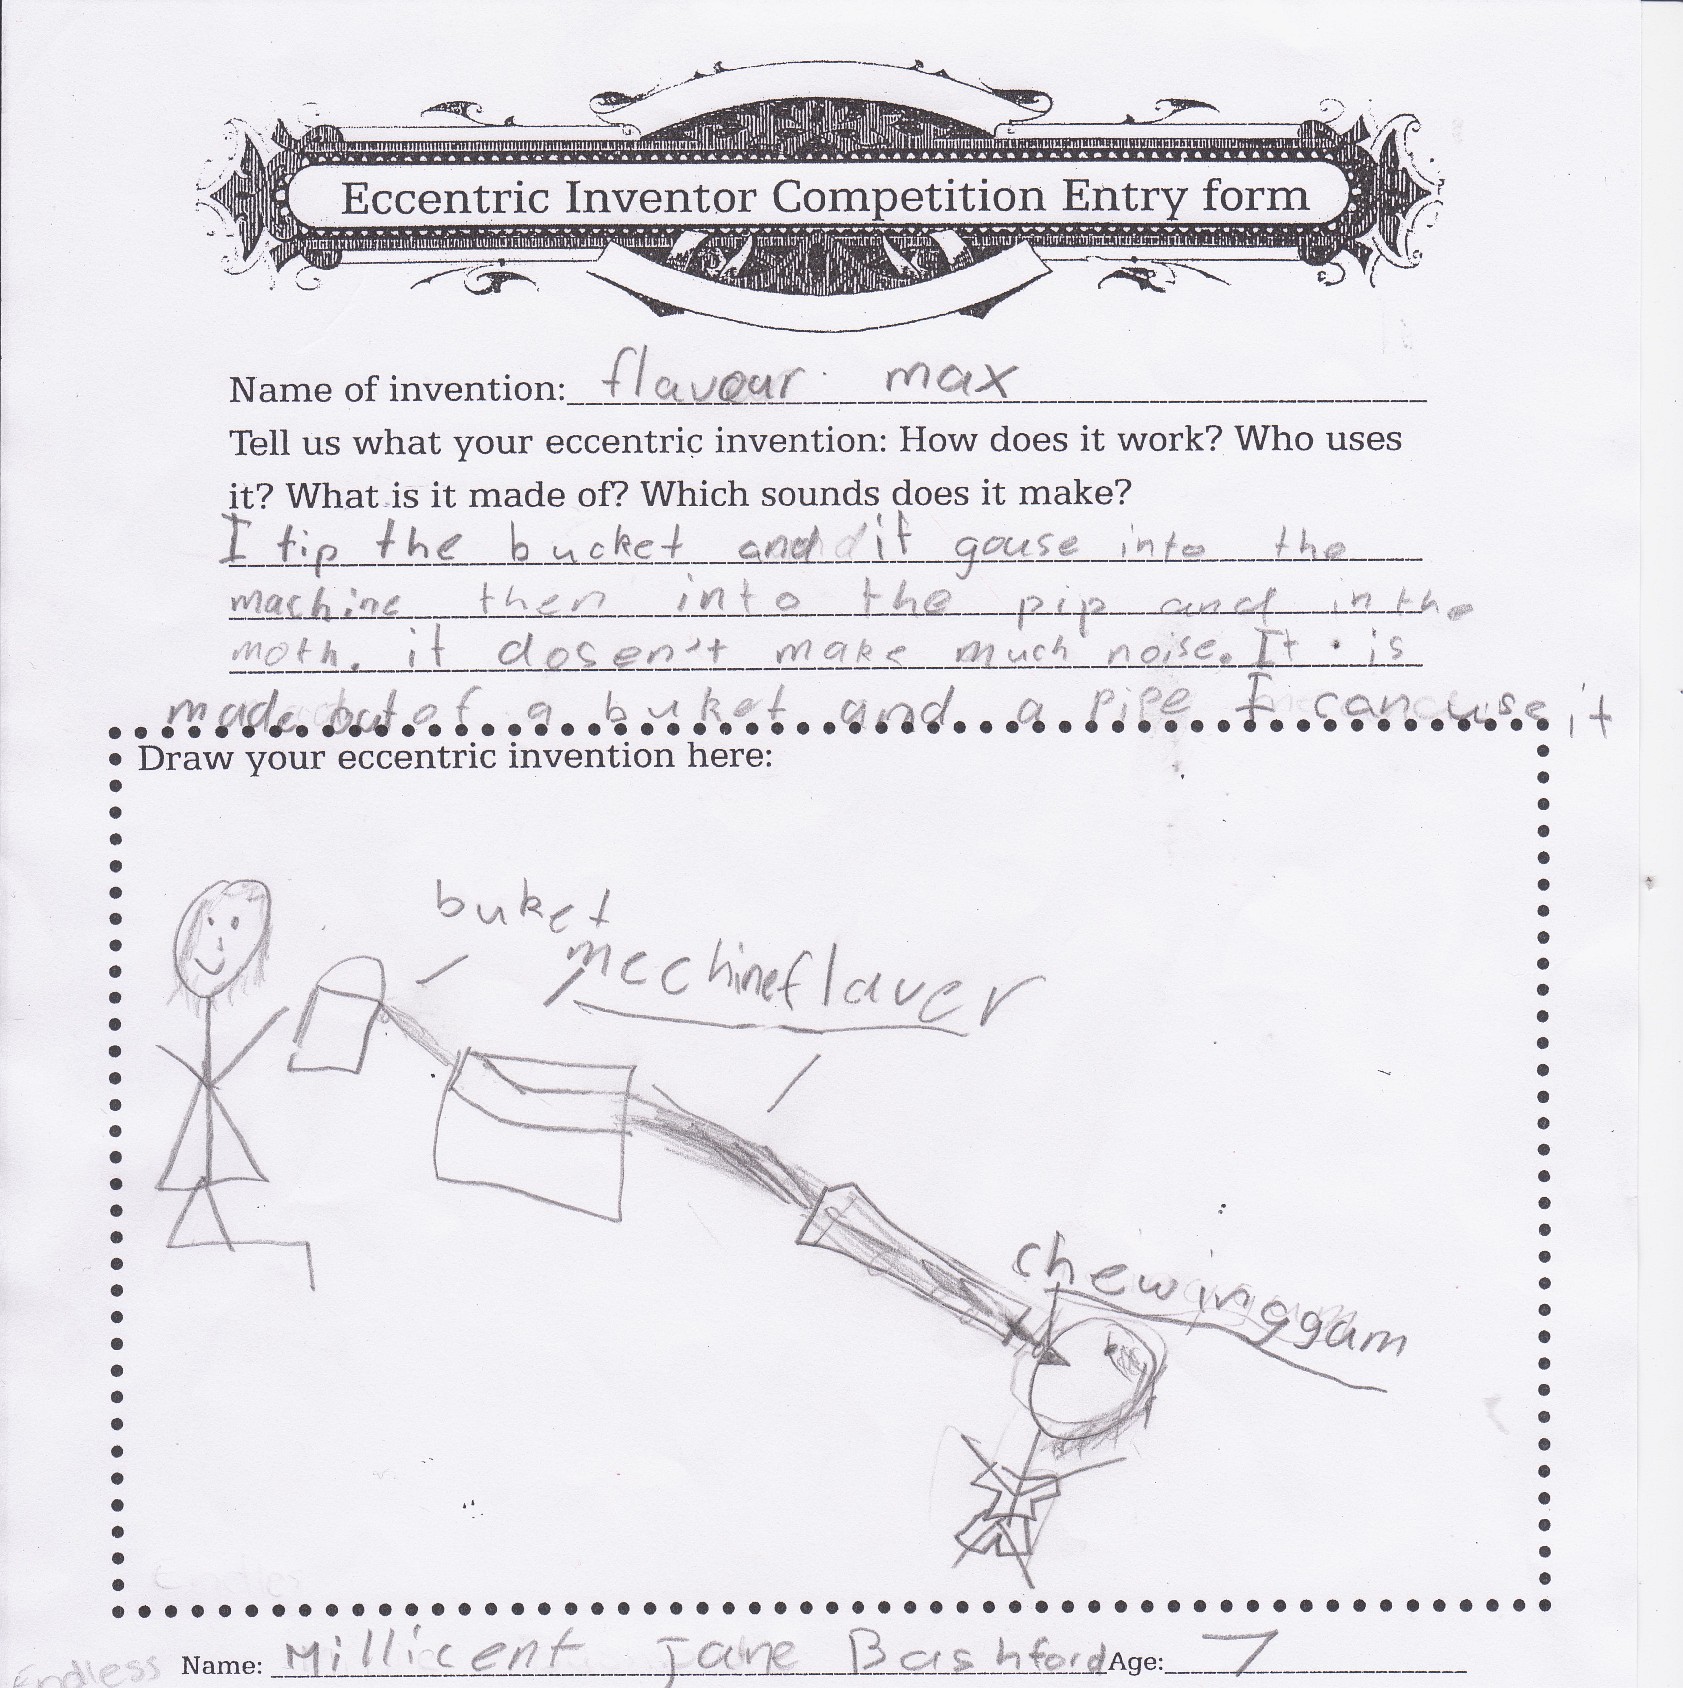 Eccentric Inventor Competition Entry form
Name of invention: flavour max
Tell us what your eccentric invention: How does it work? Who uses
it? What is it made of? Which sounds does it make?
I tip the bucket and it gouse into the
machine then into the pip and in the
moth. it dosen't make much noise. It is
made out of a buket and a pipe I can use it
Draw your eccentric invention here:
buket
mechine flaver
chewing gam
Endless Name: Millicent Jane Bashford Age: 7